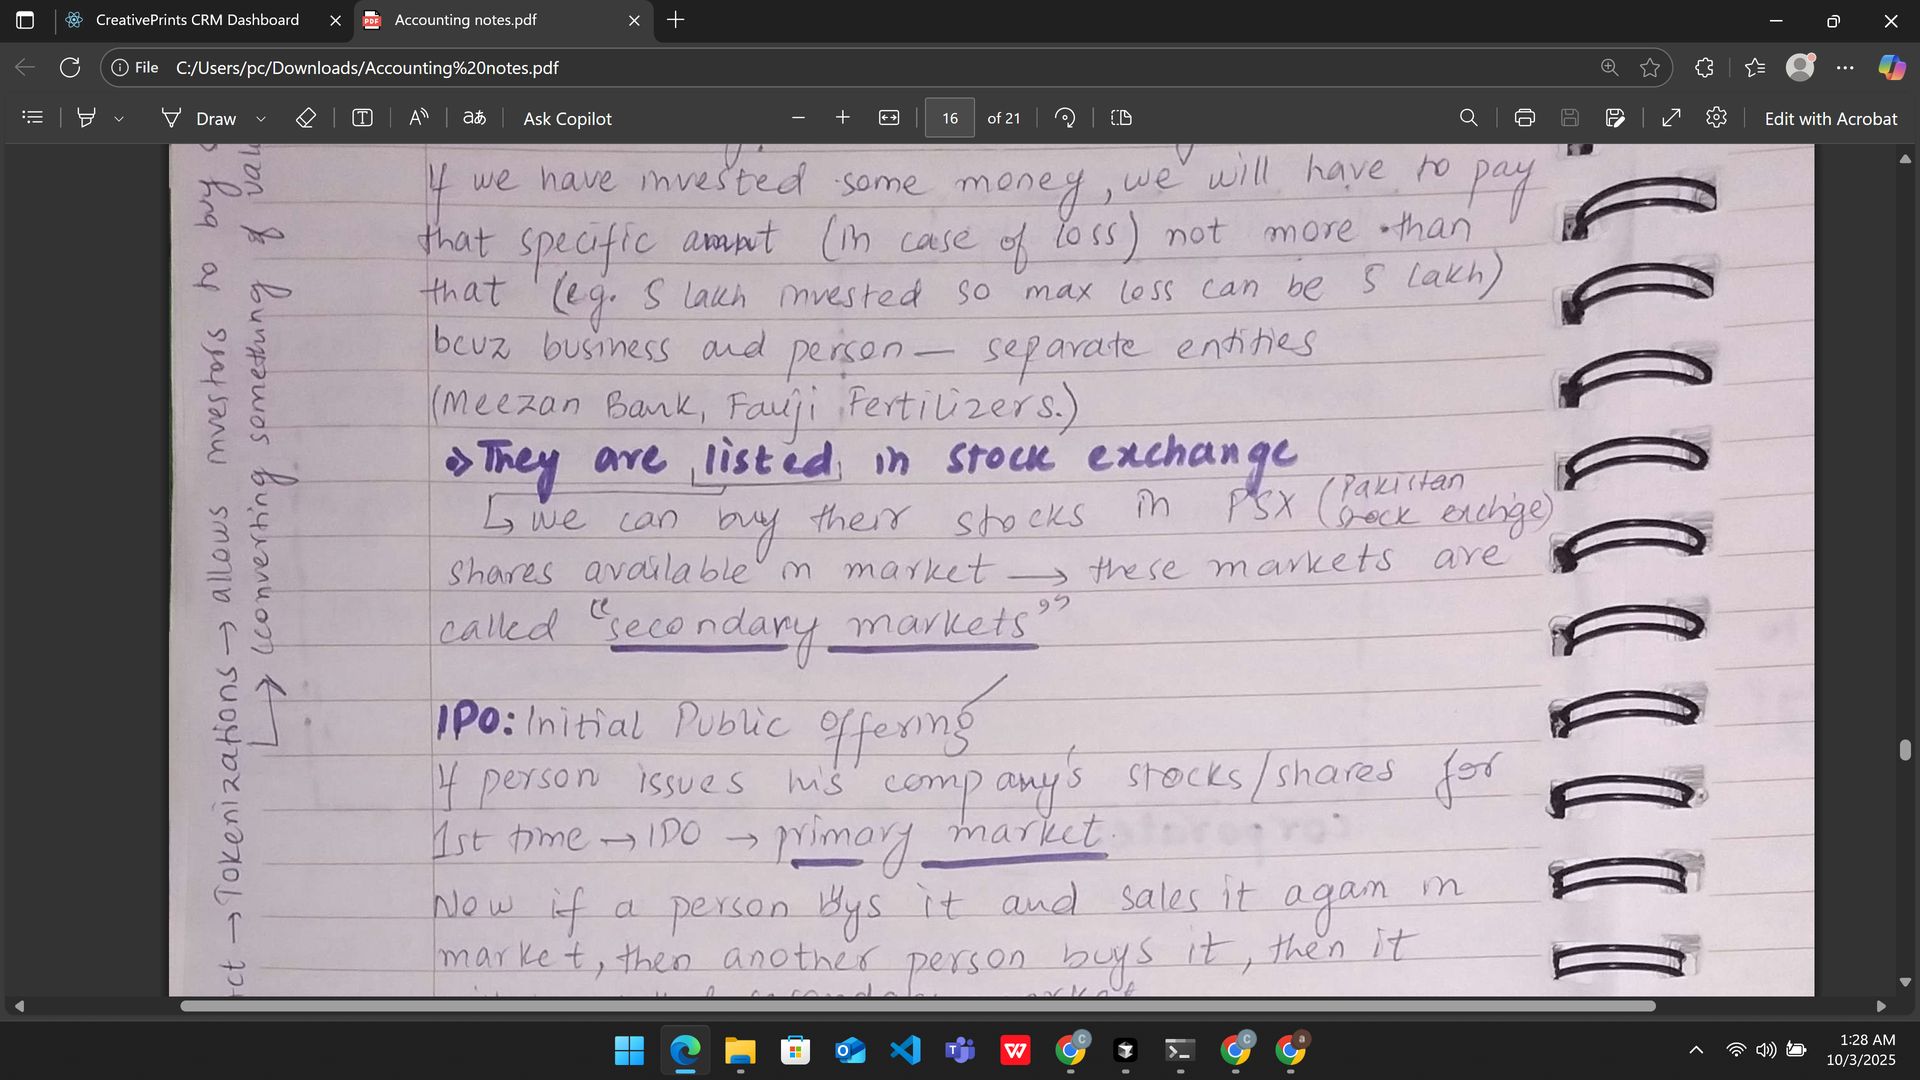 CreativePrints CRM Dashboard
Accounting notes.pdf
File
C:/Users/pc/Downloads/Accounting%20notes.pdf
Draw
Ask Copilot
16
of 21
Edit with Acrobat
If we have invested some money, we will have to pay
that specific amount (in case of loss) not more than
that (eg. 5 lakh invested so max loss can be 5 lakh)
bcuz business and person — separate entities
(Meezan Bank, Fauji Fertilizers.)
They are listed in stock exchange
↳ we can buy their stocks in PSX (Pakistan
stock exchnge)
shares available in market → these markets are
called "secondary markets"
IPO: Initial Public Offering
If person issues his company's stocks/shares for
1st time → IPO → primary market.
Now if a person buys it and sales it again in
market, then another person buys it, then it
secondary market
→ Tokenizations → allows investors to buy
↳ (converting something of val
1:28 AM
10/3/2025